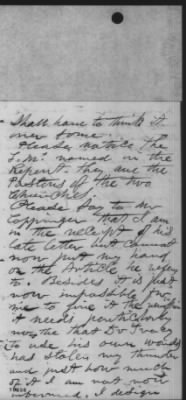 Shall have to think it
over some.
Please notice the
S.M. named in the
Report. they are the
Pastors of the two
Churches.
Please say to Mr
Coppinger that I am
in the receipt of his
late letter but cannot
now put my hand
on the Article he refers
to. Besides it is just
now impossible for
me to give the
it needs particularly
now that Dr Tracy
to use his own words
has stolen my thunder
and just how much
of it I am not now
informed. I design